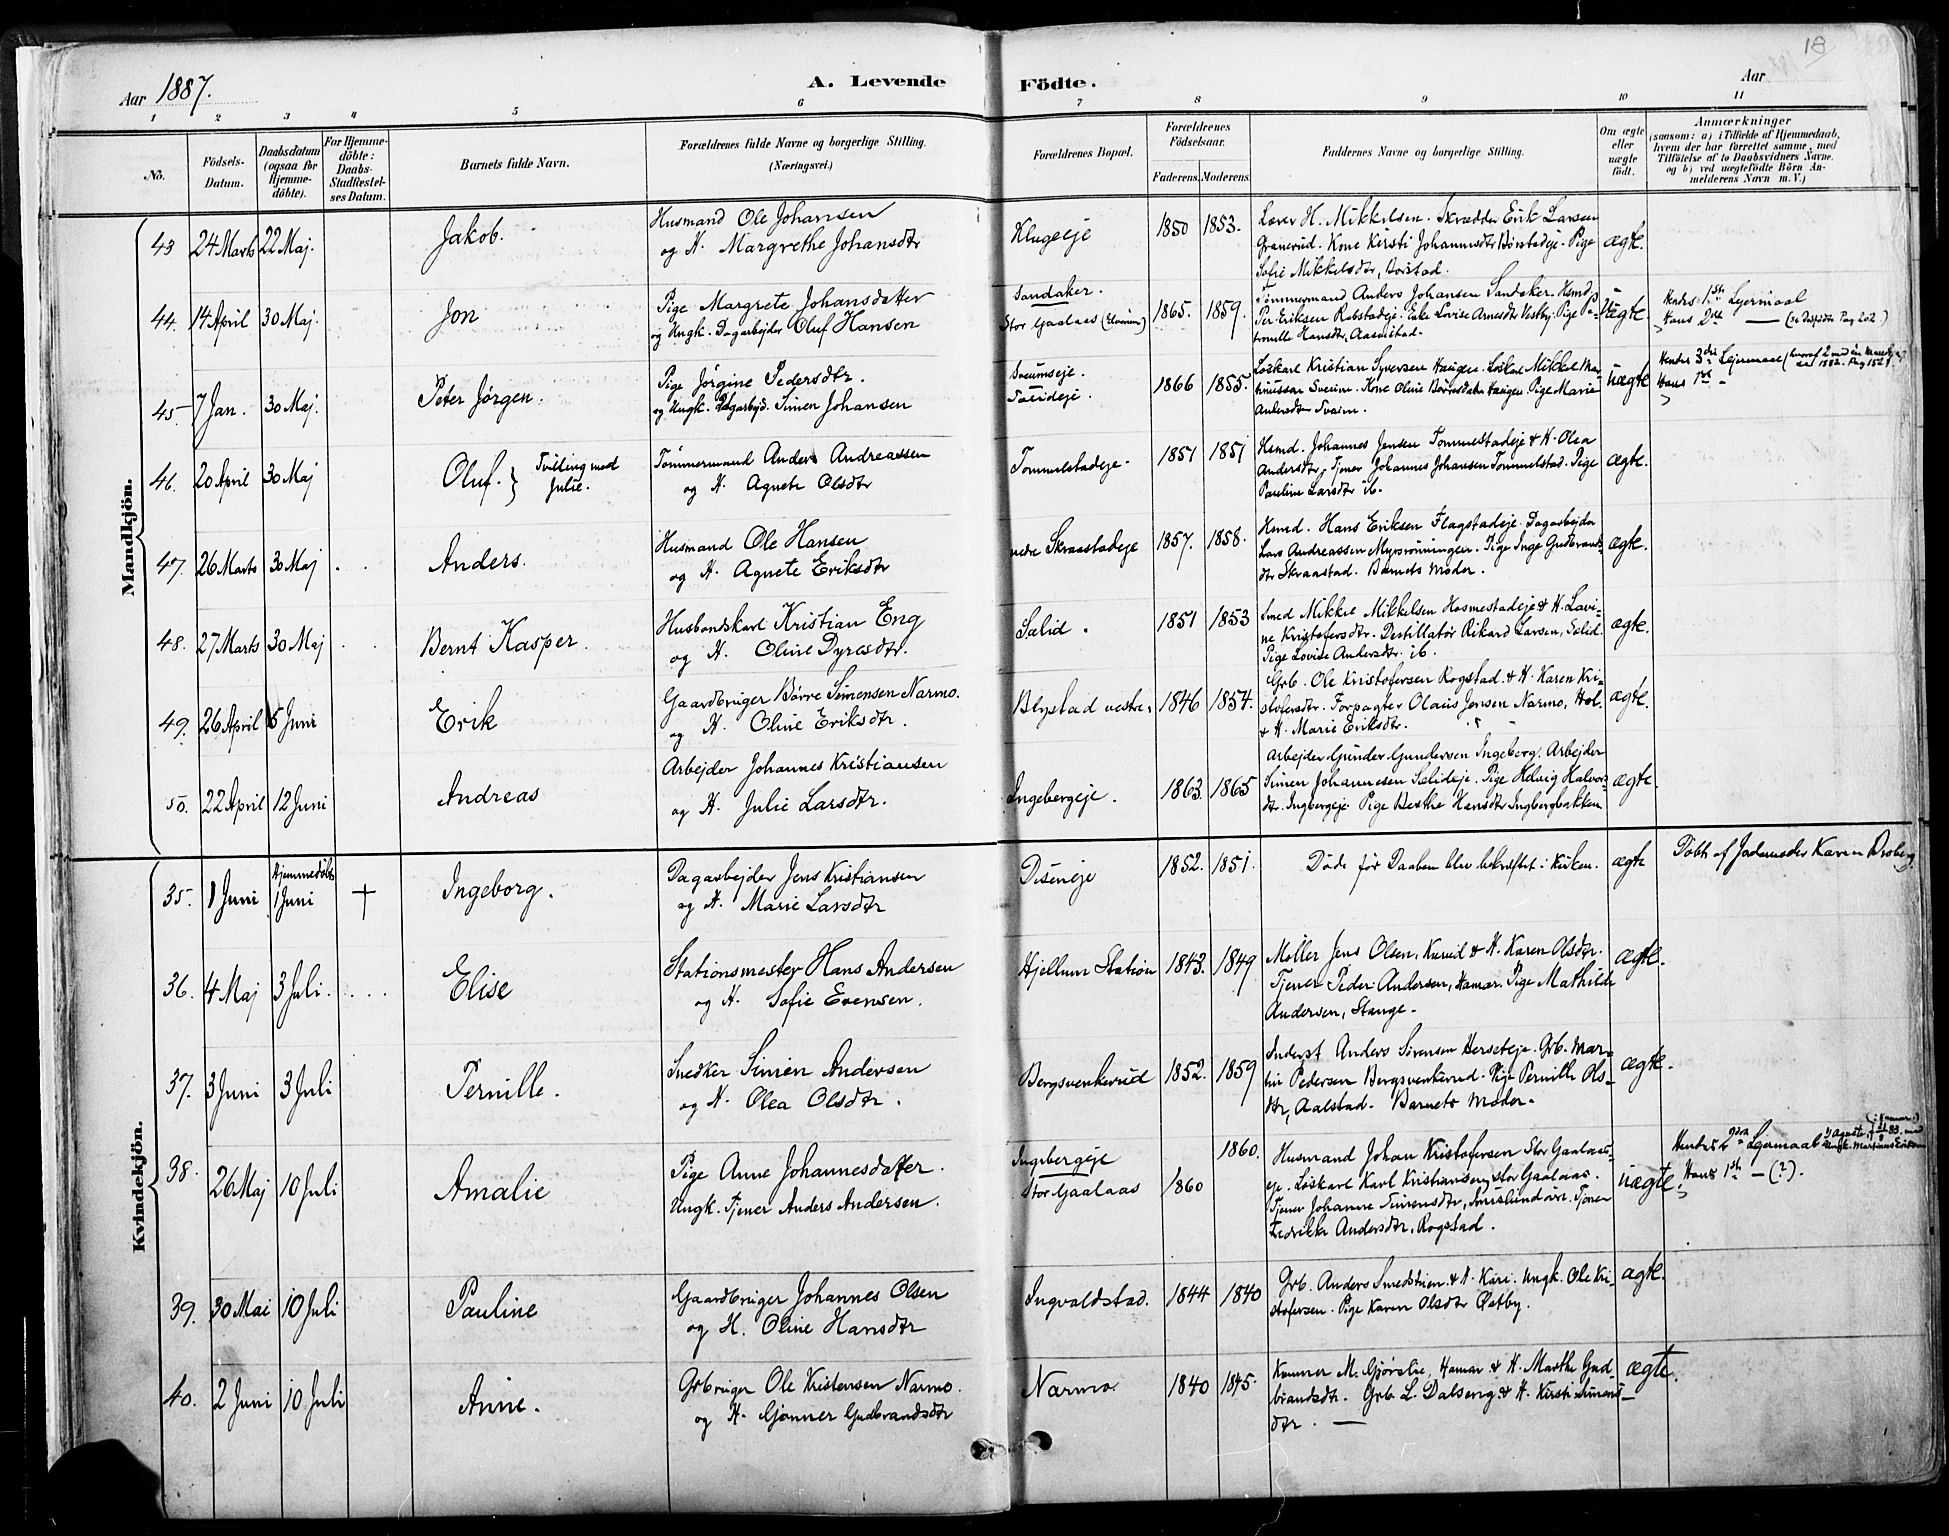 18
Aar 1887.
A. Levende Födte.
Aar
1 2 3 4 5 6 7 8 9 10 11
No.
Födsels-Datum.
Daabsdatum (ogsaa for Hjemme-döbte).
For Hjemme-döbte: Daabs-Stadfæstel-ses Datum.
Barnets fulde Navn.
Forældrenes fulde Navne og borgerlige Stilling.
(Næringsvei.)
Forældrenes Bopæl.
Forældrenes Födselsaar.
Faderens. Moderens.
Faddernes Navne og borgerlige Stilling.
Om ægte eller uægte födt.
Anmærkninger
(saasom: a) i Tilfælde af Hjemmedaab, hvem der har forrettet samme, med Tilföielse af to Daabsvidners Navne, og b) ved uægtefödte Börn An-melderens Navn m. V.)
Mandkjön.
43 24 Marts 22 Maj. Jakob.
Husmand Ole Johansen
og H. Margrethe Johansdtr
Klugeeje 1850 1853.
Lærer H. Mikkelsen. Skrædder Erik Larsen
Granerud. Kone Kirsti Johannesdtr Börstadeje. Pige
Sofie Mikkelsdtr, Borstad.
ægte.
44. 14 April 30 Maj. Jon
Pige Margrete Johansdatter
og Ungk. Dagarbejder Oluf Hansen
Sandaker.
Stor Gaalaas 1865. 1859.
Tømmermand Anders Johansen Sandaker. Hsmd.
Per Eriksen Rabstadeje. Enke Lovise Arnesdtr Vestby. Pige Pe-
tronille Hansdtr, Aasmestad.
Uægte.
Hendes 1ste Lejermaal
Hans 2det —
45. 7 Jan. 30 Maj. Peter Jørgen.
Pige Jørgine Pedersdtr.
og Ungk. Dagarbejd. Simen Johansen
Sveumseje. 1866 1855.
Løskarl Kristian Syversen Haugen. Løskarl Mikkel Mar-
tinussen Sveum. Kone Oline Børresdatter Haugen. Pige Marie
Andersdtr
uægte
Hendes 3die Lejermaal
Hans 1ste -
46. 20 April 30 Maj Oluf. } Tvilling med
Julie.
Tømmermand Anders Andreassen
og H. Agnete Olsdtr
Tommelstadeje. 1851 1851
Hsmd. Johannes Jensen Tommelstadeje & H. Olea
Andersdtr, Tjener Johannes Johansen Tommelstad. Pige
Pauline Larsdtr ib.
ægte.
47. 26 Marts 30 Maj Anders.
Husmand Ole Hansen
og H. Agnete Eriksdtr
nedre Skraastadeje 1857. 1858.
Hsmd. Hans Eriksen Flagstadeje. Dagarbejder
Lars Andreassen Myrsrønningen. Pige Inge Gudbrands-
dtr Skraastad. Barnets Moder.
ægte.
48. 27 Marts 30 Maj Bernt Kasper.
Husbondskarl Kristian Eng
og H. Oline Dyresdtr.
Sælid. 1851 1853
Smed Mikkel Mikkelsen Hosmestadeje & H. Lovi-
ne Kristofersdtr. Destillatør Rikard Larsen, Sælid.
Pige Lovise Andersdtr. ib.
ægte.
49. 26 April 5 Juni Erik
Gaardbruger Børre Simensen Narmo.
og H. Oline Eriksdtr.
Blystad vestre. 1846 1854.
Grb. Ole Kristofersen Rogstad. & H. Karen Kri-
stofersdtr. Forpagter Olaus Jensen Narmo, Hol.
& H. Marie Eriksdtr.
ægte.
50. 22 April 12 Juni Andreas
Arbejder Johannes Kristiansen
og H. Julie Larsdtr.
Ingebergeje. 1863. 1865
Arbejder Gunder Gundersen Ingeberg, Arbejder
Simen Johannesen Sælideje. Pige Helvig Halvors-
dtr. Ingbergeje. Pige Berthe Hansdtr Ingbergbakken
ægte.
Kvindekjön.
35. 1 Juni Hjemmedöbt
1 Juni † Ingeborg.
Dagarbejder Jens Kristiansen
og H. Marie Larsdtr
Diseneje 1852. 1851.
Døde før Daaben blev bekræftet i Kirken.
ægte
Döbt af Jademoder Karen Broberg.
36. 4 Maj 3 Juli. Elise
Stationsmester Hans Andersen
og H. Sofie Evensen.
Hjellum Station 1843. 1849
Møller Jens Olsen, Kurud & H. Karen Olsdtr.
Tjener Peder Andersen, Hamar. Pige Mathilde
Andersen, Stange.
ægte.
37. 3 Juni 3 Juli Pernille.
Snedker Simen Andersen
og H. Olea Olsdtr.
Bergsvenkerud 1852. 1859
Inderst Anders Sørensen Herseteje. Grb. Mar-
tin Pedersen Bergsvenkerud. Pige Pernille Ols-
dtr, Aalstad. Barnets Moder.
ægte.
38. 26 Maj 10 Juli Amalie
Pige Anne Johannesdatter.
Ungk. Tjener Anders Andersen.
Ingebergeje 1860.
Stor Gaalaas 1860
Husmand Johan Kristofersen Stor Gaalaas-
eje. Løskarl Karl Kristiansen, Stor Gaalaas.
Tjener Johanne Simensdtr, Imislund øvr. Tjener
Fredrikke Andersdtr, Rogstad.
uægte.
Hendes 2det Lejermaal
Hans 1ste — (?).
39. 30 Mai 10 Juli Pauline
Gaardbruger Johannes Olsen
og H. Oline Hansdtr
Ingvaldstad. 1844 1840
Grb. Anders Smedstuen & H. Kari. Ungk. Ole Kri-
stofersen. Pige Karen Olsdtr Østby.
ægte.
40. 2 Juni 10 Juli Anne.
Grbruger Ole Kristensen Narmo.
og H. Gjønner Gudbrandsdtr
Narmo. 1840 1845.
M. Gjørslie, Hamar & H. Marthe Gud-
brandsdtr. Grb. L. Dalseng & H. Kirsti Simens-
dtr. —
ægte.